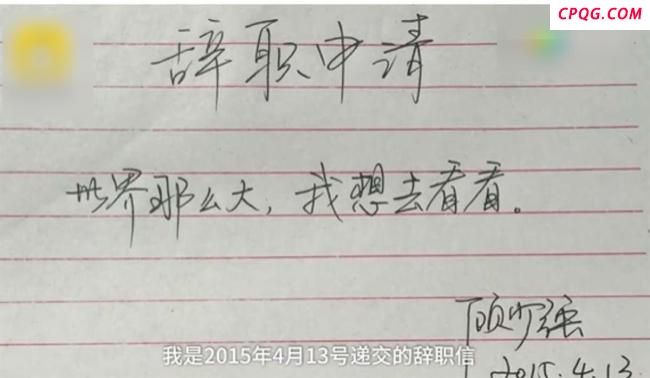 CPQG.COM
辞职申请
世界那么大，我想去看看。
顾少强
2015.4.13
我是2015年4月13号递交的辞职信